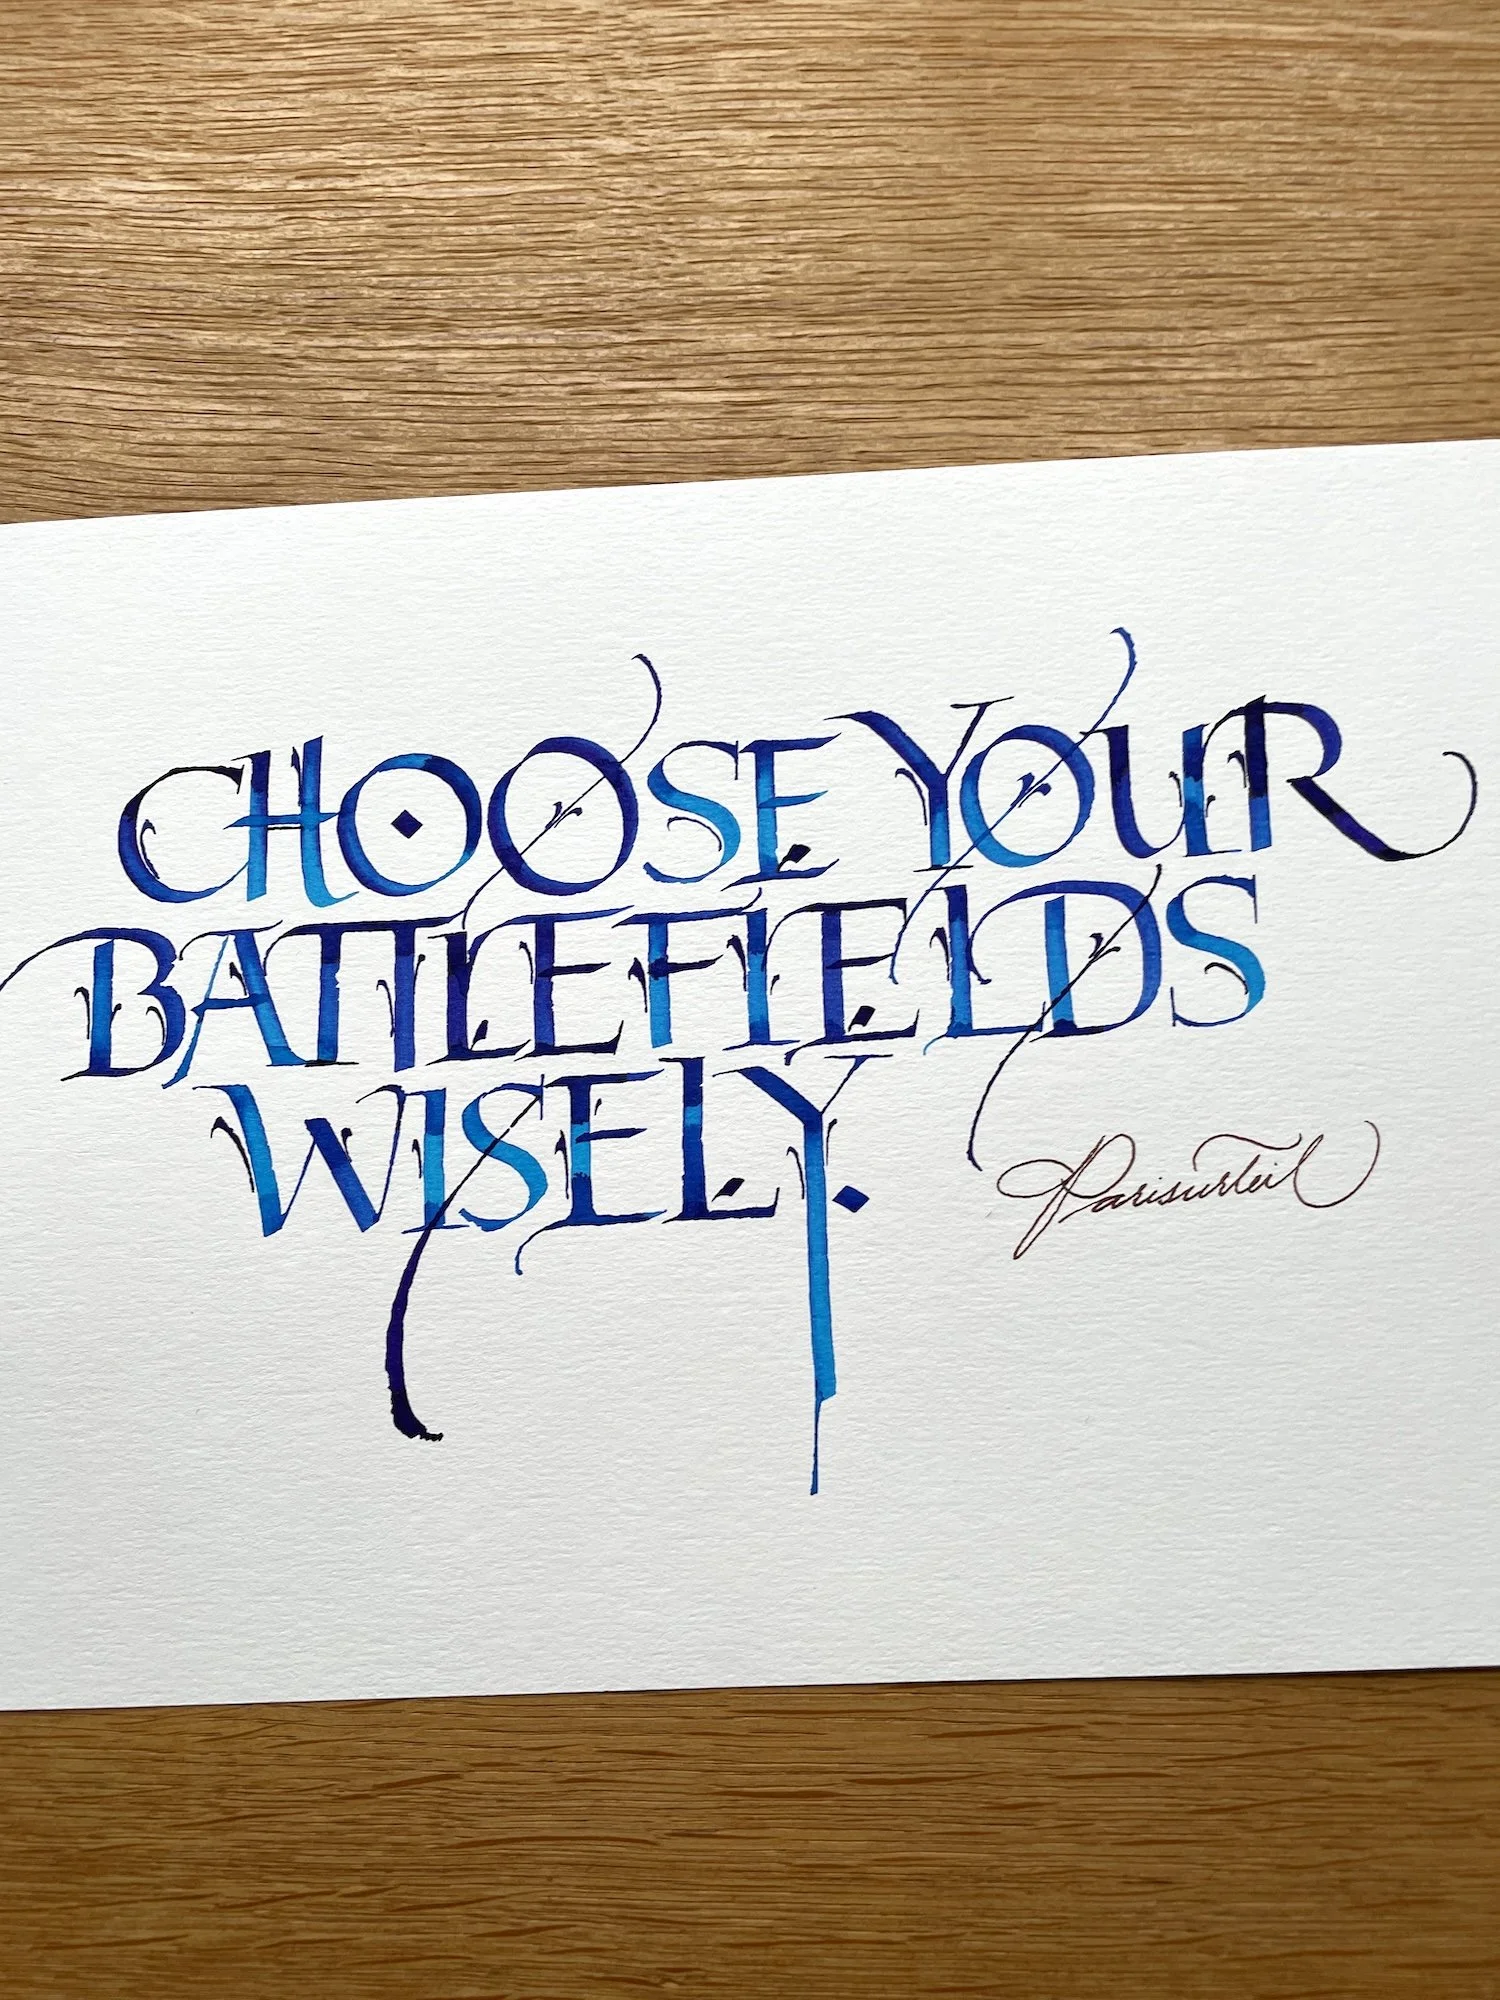 CHOOSE YOUR
BATTLEFIELDS
WISELY.
Parisurteil